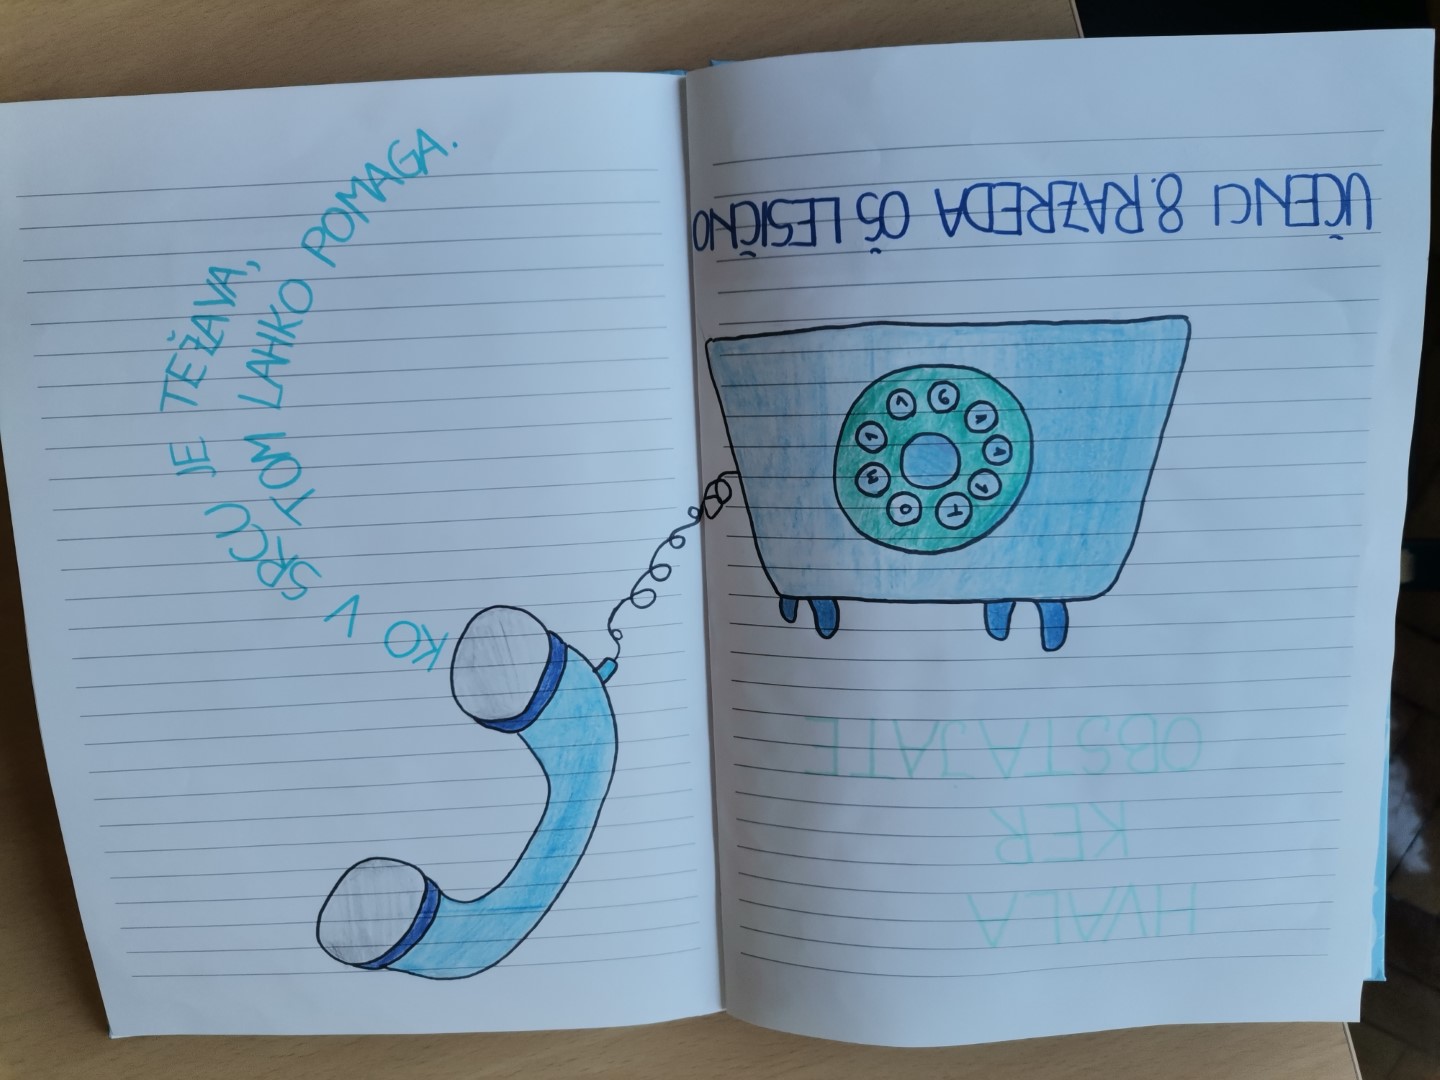 HVALA
KER
OBSTAJATE
T
O
M
UČENCI 8. RAZREDA OŠ LESIČNO
KO V SRCU JE TEŽAVA,
TOM LAHKO POMAGA.